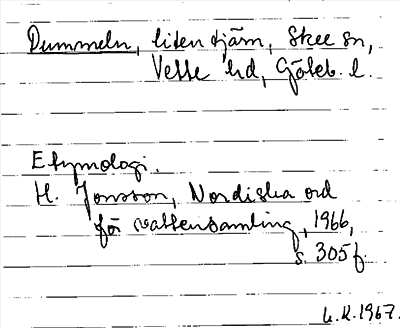 Dummeln, liten tjärn, Skee sn,
Vette hd, Göteb. l.
Etymologi.
H. Jonsson, Nordiska ord
för vattensamling, 1966,
s. 305 f.
U.K. 1967.